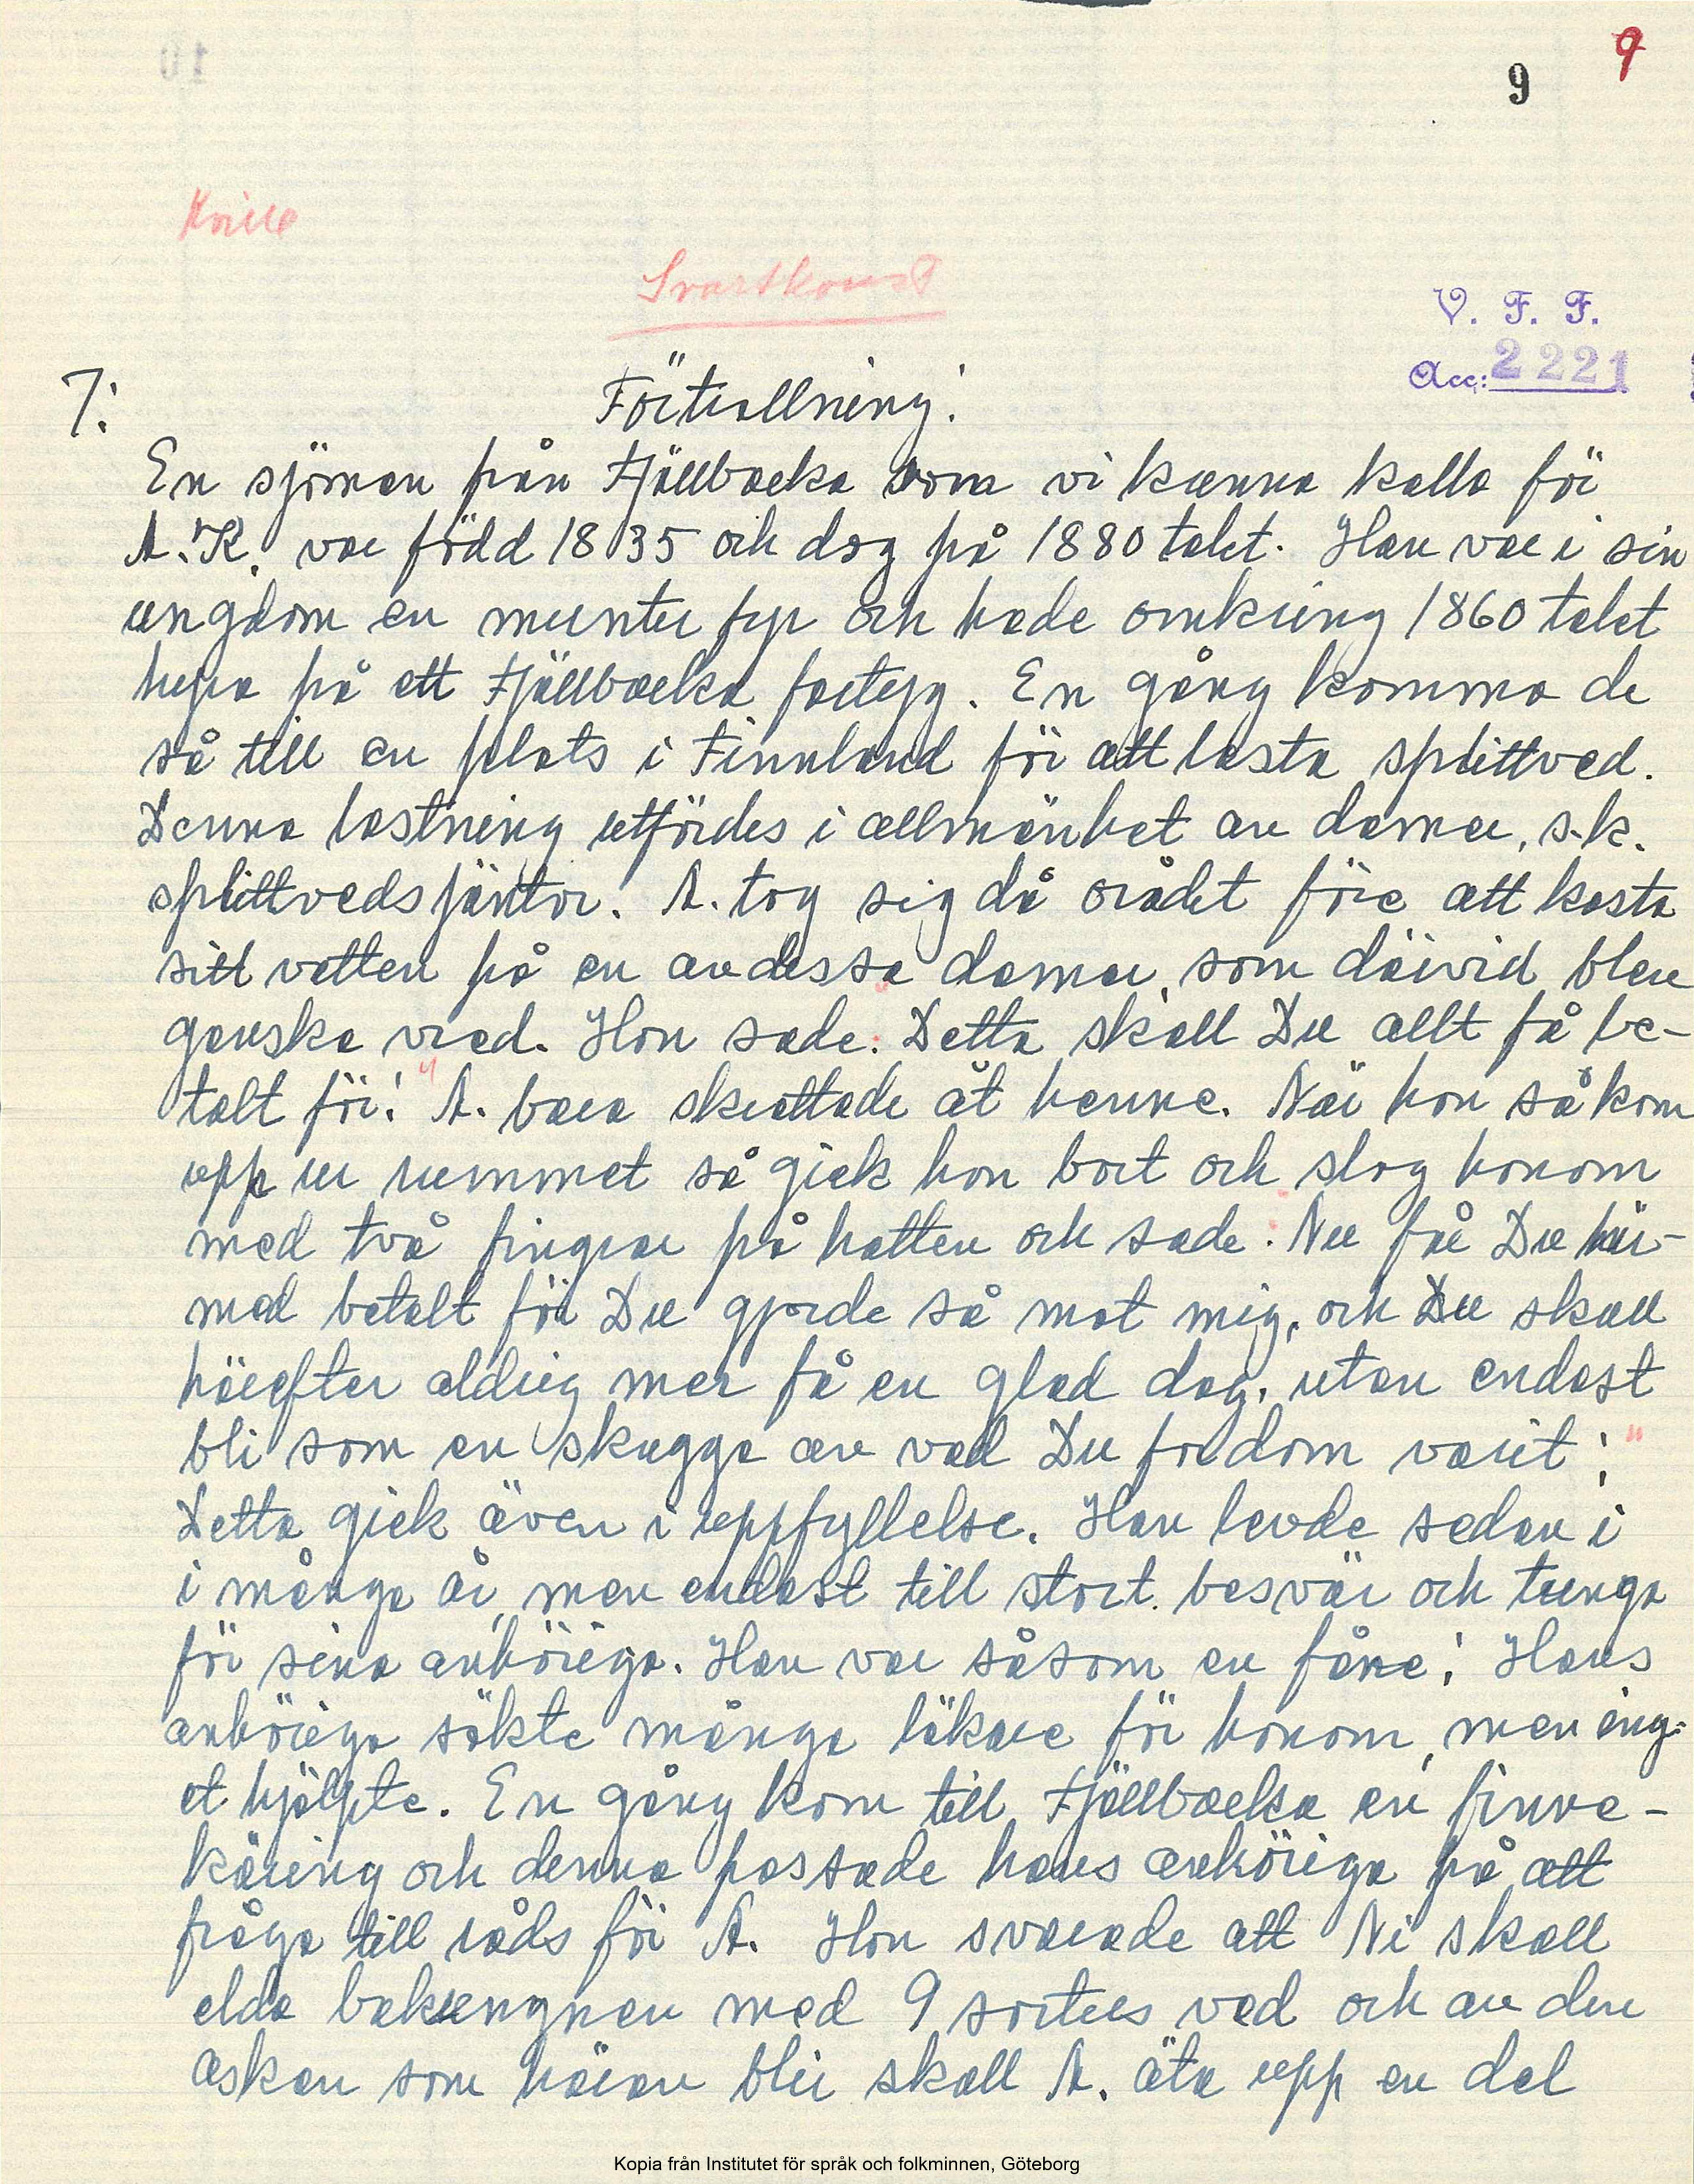 9
9
Kville
Svartkonst
V. F. F.
Acc: 2221
7:
Förtrollning!
En sjöman från Fjällbacka som vi kunna kalla för
A. K. var född 1835 och dog på 1880 talet. Han var i sin
ungdom en munter fyr och hade omkring 1860 talet
hyra på ett Fjällbacka fartyg. En gång kommo de
så till en plats i Finnland för att lasta splittved.
Denna lastning utfördes i allmänhet av damer, s.k.
splittvedsjäntor. A. tog sig då orådet före att kasta
sitt vatten på en av dessa damer, som därvid blev
ganska vred. Hon sade: Detta skall Du allt få be-
talt för!" A. bara skrattade åt henne. När hon så kom
opp ur rummet så gick hon bort och slog honom
med två fingrar på hatten och sade: Nu får Du här-
med betalt för Du gjorde så mot mig, och Du skall
härefter aldrig mer få en glad dag, utan endast
bli som en skugga av vad Du fordom varit!"
Detta gick även i uppfyllelse. Han levde sedan i
i många år, men endast till stort besvär och tunga
för sina anhöriga. Han var såsom en fåne! Hans
anhöriga sökte många läkare för honom, men ing-
et hjälpte. En gång kom till Fjällbacka en finne-
käring och denna passade hans anhöriga på att
fråga till råds för A. Hon svarade att Ni skall
elda bakungnen med 9 sorters ved och av den
askan som härav blir skall A. äta upp en del
Kopia från Institutet för språk och folkminnen, Göteborg